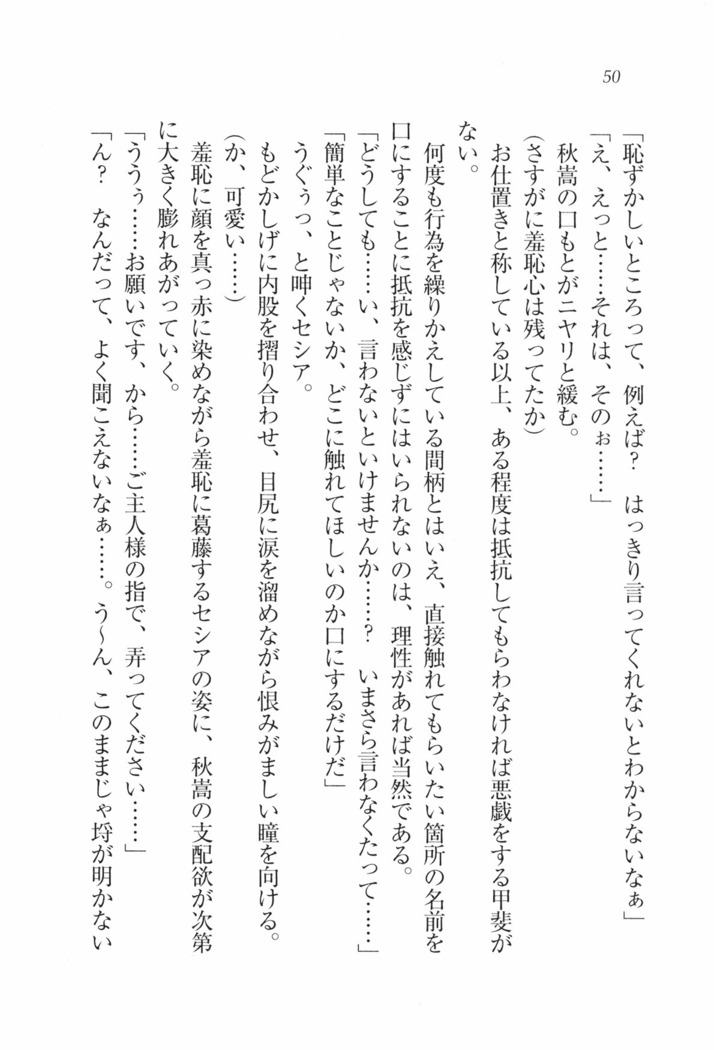 50
「恥ずかしいところって、例えば？　はっきり言ってくれないとわからないなぁ」
「え、えっと……それは、そのぉ……」
秋嵩の口もとがニヤリと緩む。
(さすがに羞恥心は残ってたか)
お仕置きと称している以上、ある程度は抵抗してもらわなければ悪戯をする甲斐が
ない。
何度も行為を繰りかえしている間柄とはいえ、直接触れてもらいたい箇所の名前を
口にすることに抵抗を感じずにはいられないのは、理性があれば当然である。
「どうしても……い、言わないといけませんか……？　いまさら言わなくたって……」
「簡単なことじゃないか、どこに触れてほしいのか口にするだけだ」
うぐぅっ、と呻くセシア。
もどかしげに内股を摺り合わせ、目尻に涙を溜めながら恨みがましい瞳を向ける。
(か、可愛い……)
羞恥に顔を真っ赤に染めながら羞恥に葛藤するセシアの姿に、秋嵩の支配欲が次第
に大きく膨れあがっていく。
「ううぅ……お願いです、から……ご主人様の指で、弄ってください……」
「ん？　なんだって、よく聞こえないなぁ……。う〜ん、このままじゃ埒が明かない